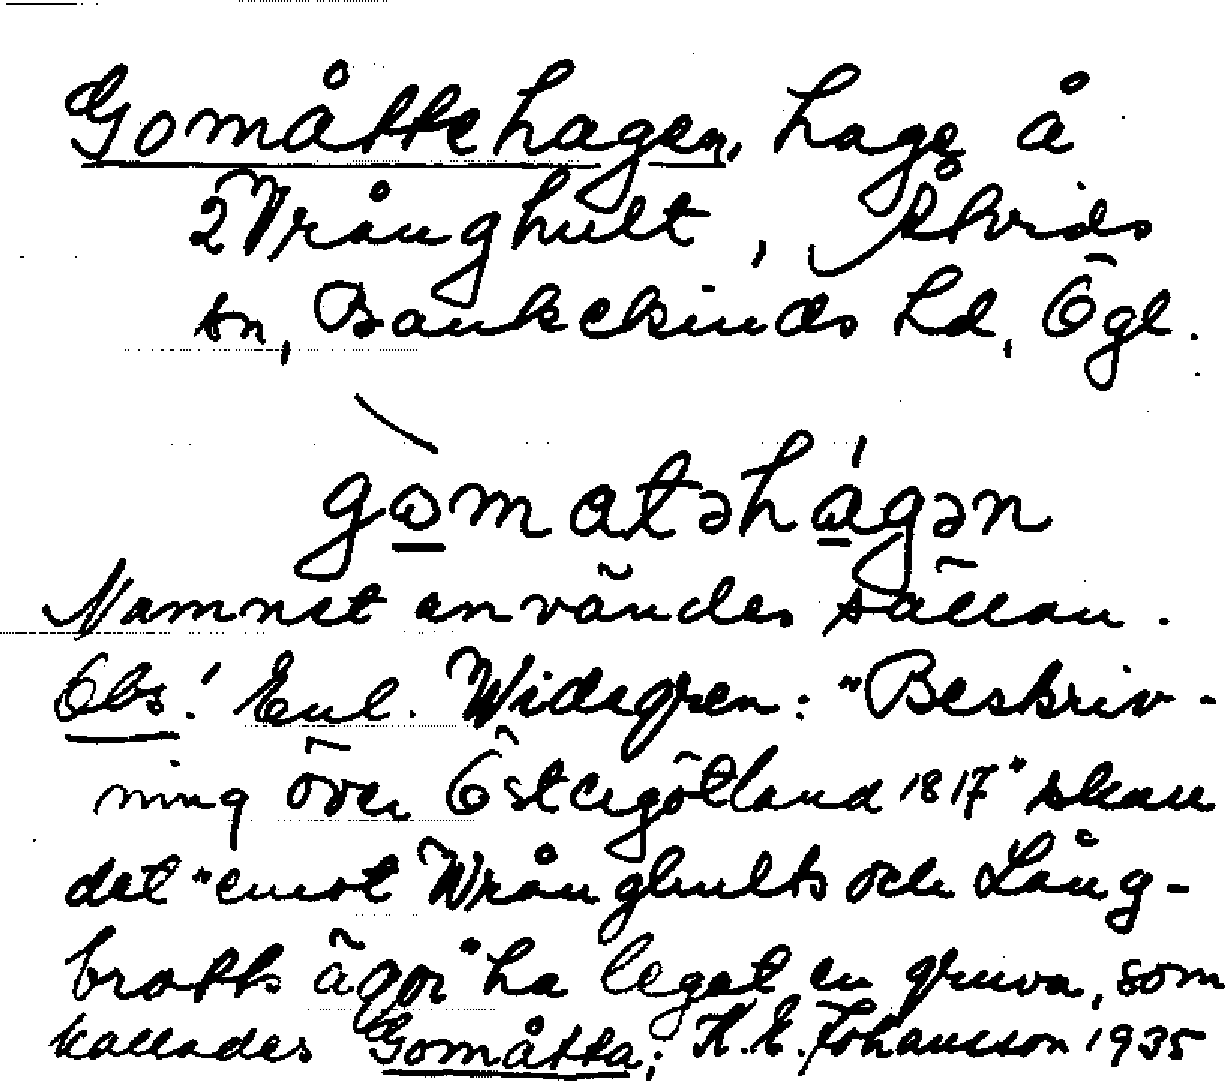 Gomåttehagen, hage å
2 Vrånghult, Åtvids
sn, Bankekinds hd, Ögl.
gɷmatəhágən
Namnet användes sällan.
Obs! Enl. Widegren: "Beskriv-
ning över Östergötland 1817" skall
det "emot Wrånghults och Lång-
brotts ägor" ha legat en gruva, som
kallades Gomåtta; K.E. Johansson 1935